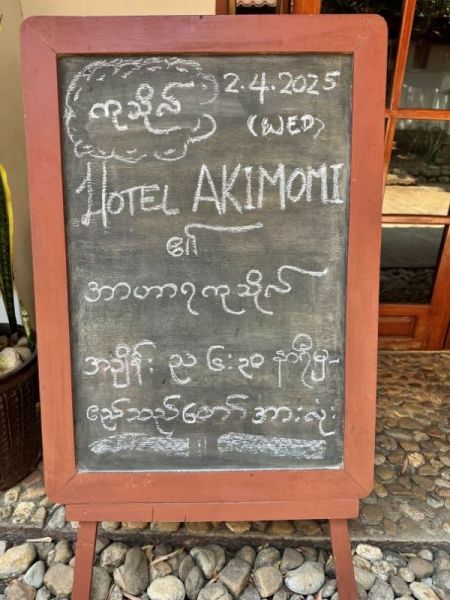 ကုသိုလ်
2.4.2025
(WED)
HOTEL AKIMOMI
၏
အာဟာရကုသိုလ်
အချိန်း ည ၆:၃၀ နာရီမှ-
ဧည့်သည်တော် အားလုံး